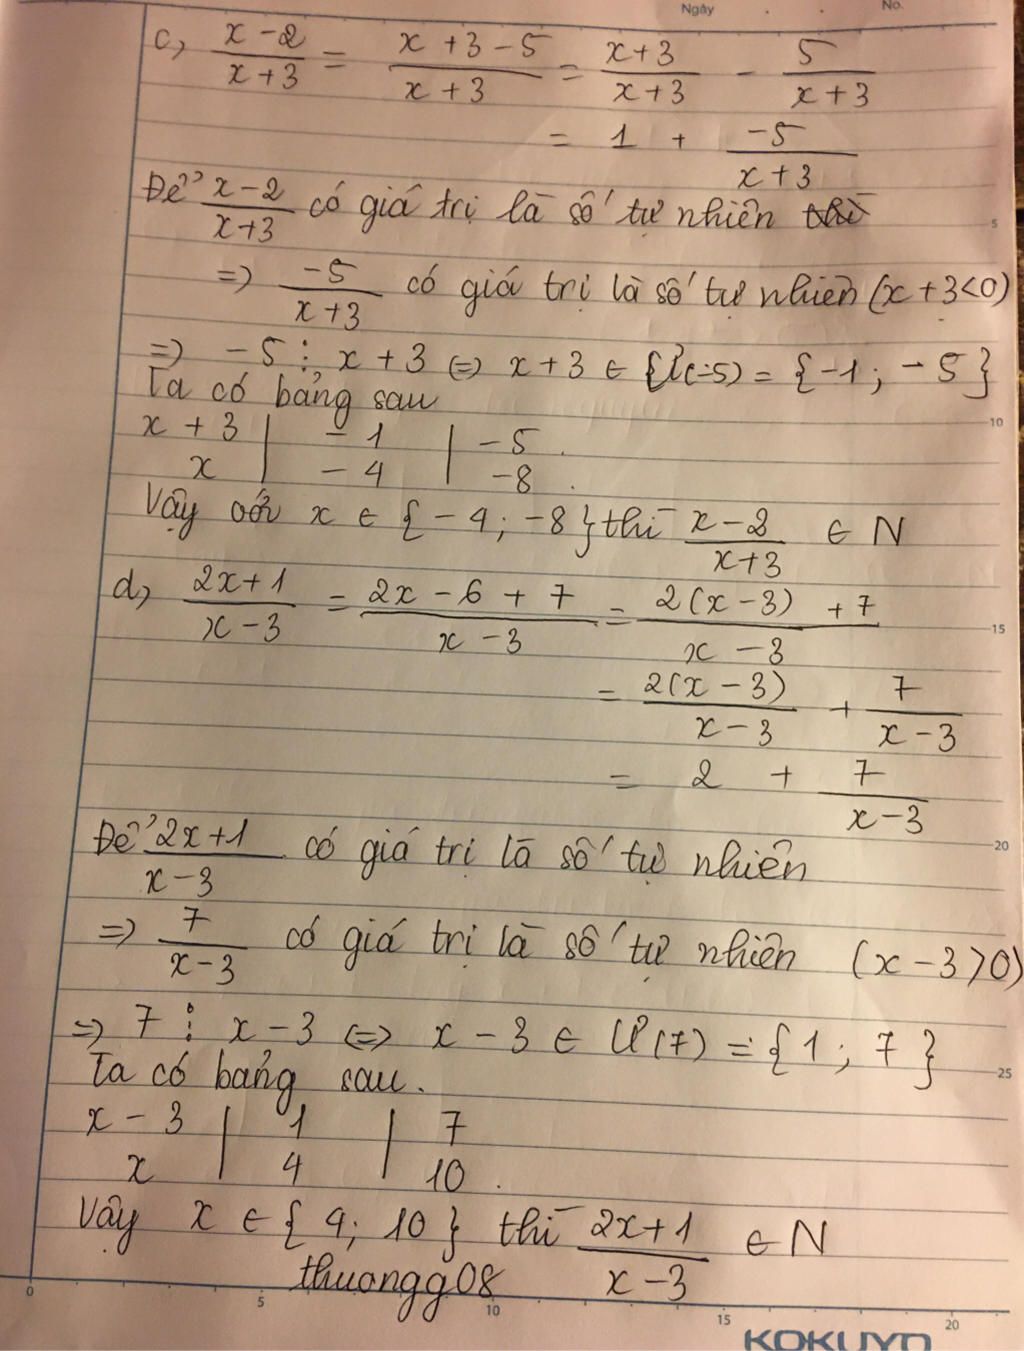 Ngày . . No.
c, \frac{x-2}{x+3} = \frac{x+3-5}{x+3} = \frac{x+3}{x+3} - \frac{5}{x+3}
= 1 + \frac{-5}{x+3}
Để \frac{x-2}{x+3} có giá trị là số tự nhiên thì
=> \frac{-5}{x+3} có giá trị là số tự nhiên (x+3<0)
=> -5 ⋮ x+3 <=> x+3 ∈ Ư(-5) = {-1; -5}
Ta có bảng sau
x+3 | -1 | -5
x | -4 | -8
Vậy với x ∈ {-4; -8} thì \frac{x-2}{x+3} ∈ N
d, \frac{2x+1}{x-3} = \frac{2x-6+7}{x-3} = \frac{2(x-3)+7}{x-3}
= \frac{2(x-3)}{x-3} + \frac{7}{x-3}
= 2 + \frac{7}{x-3}
Để \frac{2x+1}{x-3} có giá trị là số tự nhiên
=> \frac{7}{x-3} có giá trị là số tự nhiên (x-3>0)
=> 7 ⋮ x-3 <=> x-3 ∈ Ư(7) = {1; 7}
Ta có bảng sau.
x-3 | 1 | 7
x | 4 | 10.
Vậy x ∈ {4; 10} thì \frac{2x+1}{x-3} ∈ N
thuongg08
5
10
15
20
25
0 5 10 15 20
KOKUYO